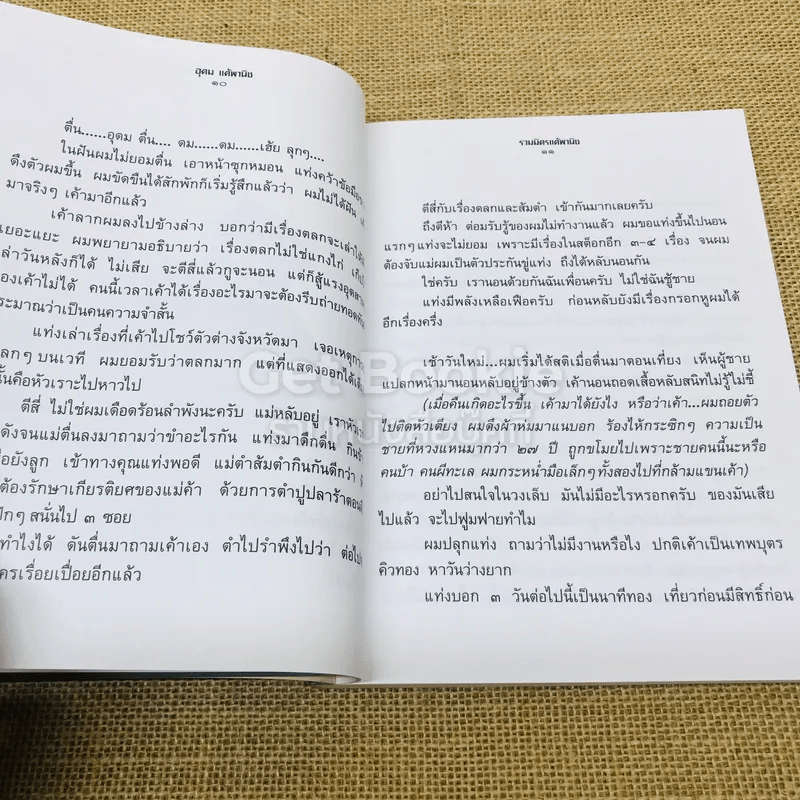 อุดม แต้พานิช
๑๐
ตื่น......อุดม ตื่น.... ดม......ดม......เฮ้ย ลุกๆ....
ในฝันผมไม่ยอมตื่น เอาหน้าซุกหมอน แท่งคว้าข้อมือ
ดึงตัวผมขึ้น ผมขัดขืนได้สักพักก็เริ่มรู้สึกแล้วว่า ผมไม่ได้ฝัน
มาจริงๆ เค้ามาอีกแล้ว
เค้าลากผมลงไปข้างล่าง บอกว่ามีเรื่องตลกจะเล่าให้
เยอะแยะ ผมพยายามอธิบายว่า เรื่องตลกไม่ใช่แกงไก่
ล่าวันหลังก็ได้ ไม่เสีย จะตีสี่แล้วกูจะนอน แต่ก็สู้แรง
องเค้าไม่ได้ คนนี้เวลาเค้าได้เรื่องอะไรมาจะต้องรีบถ่ายทอด
ระมาณว่าเป็นคนความจำสั้น
แท่งเล่าเรื่องที่เค้าไปโชว์ตัวต่างจังหวัดมา เจอเหตุการ
ลกๆ บนเวที ผมยอมรับว่าตลกมาก แต่ที่แสดงออกได้
นั้นคือหัวเราะไปหาวไป
ตีสี่ ไม่ใช่ผมเดือดร้อนลำพังนะครับ แม่หลับอยู่ เราหัวเ
ดังจนแม่ตื่นลงมาถามว่าขำอะไรกัน แท่งมาดึกดื่น กิน
อยังลูก เข้าทางคุณแท่งพอดี แม่ตำส้มตำกินกันดีกว่า
ต้องรักษาเกียรติยศของแม่ค้า ด้วยการตำปูปลาร้าตอน
ปึกๆ สนั่นไป ๓ ซอย
ทำไงได้ ดันตื่นมาถามเค้าเอง ตำไปรำพึงไปว่า ต่อไป
ครเรื่อยเปื่อยอีกแล้ว
รวมมิตรแต้พานิช
๑๑
ตีสี่กับเรื่องตลกและส้มตำ เข้ากันมากเลยครับ
ถึงตีห้า ต่อมรับรู้ของผมไม่ทำงานแล้ว ผมขอแท่งขึ้นไปนอน
แรกๆ แท่งจะไม่ยอม เพราะมีเรื่องในสต๊อกอีก ๓-๔ เรื่อง จนผม
ต้องจับแม่ผมเป็นตัวประกันขู่แท่ง ถึงได้หลับนอนกัน
ใช่ครับ เรานอนด้วยกันฉันเพื่อนครับ ไม่ใช่ฉันชู้ชาย
แท่งมีพลังเหลือเฟือครับ ก่อนหลับยังมีเรื่องกรอกหูผมได้
อีกเรื่องครึ่ง
เช้าวันใหม่...ผมเริ่มได้สติเมื่อตื่นมาตอนเที่ยง เห็นผู้ชาย
แปลกหน้ามานอนหลับอยู่ข้างตัว เค้านอนถอดเสื้อหลับสนิทไม่รู้ไม่ชี้
(เมื่อคืนเกิดอะไรขึ้น เค้ามาได้ยังไง หรือว่าเค้า...ผมถอยตัว
ไปติดหัวเตียง ผมดึงผ้าห่มมาแนบอก ร้องไห้กระซิกๆ ความเป็น
ชายที่หวงแหนมากว่า ๒๗ ปี ถูกขโมยไปเพราะชายคนนี้นะหรือ
คนบ้า คนผีทะเล ผมกระหน่ำมือเล็กๆ ทั้งสองไปที่กล้ามแขนเค้า)
อย่าไปสนใจในวงเล็บ มันไม่มีอะไรหรอกครับ ของมันเสีย
ไปแล้ว จะไปฟูมฟายทำไม
ผมปลุกแท่ง ถามว่าไม่มีงานหรือไง ปกติเค้าเป็นเทพบุตร
คิวทอง หาวันว่างยาก
แท่งบอก ๓ วันต่อไปนี้เป็นนาทีทอง เที่ยวก่อนมีสิทธิ์ก่อน
Get Bookie